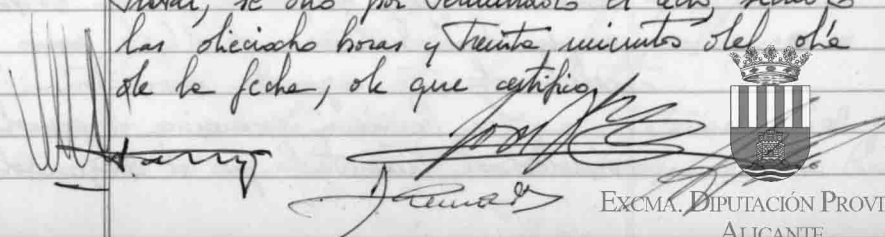 se dio por terminado el acto, siendo
las dieciocho horas y treinta minutos del día
de la fecha, de que certifico.
EXCMA. DIPUTACIÓN PROVI
ALICANTE